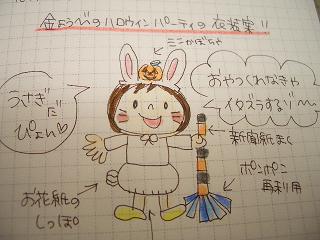 金ようびのハロウィンパーティの衣装案!!
ミニかぼちゃ
うさぎだ
ぴょん♡
おやつくれなきゃ
イタズラするゾ〜
新聞紙まく
ポンポン
再利用
お花紙の
しっぽ